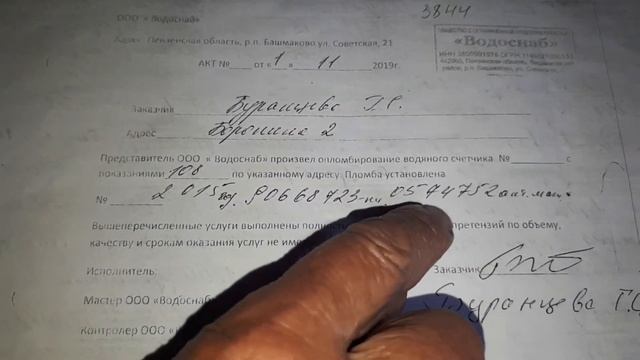 ООО « Водоснаб»
3844
«Водоснаб»
Адрес Пензенская область, р.п. Башмаково ул. Советская, 21
АКТ №____ от « 1 » 11 2019г.
Заказчик Буранцева Г.С.
Адрес 2
Представитель ООО « Водоснаб» произвел опломбирование водяного счетчика №________ с
показаниями 108 по указанному адресу. Пломба установлена
№ 2015 90668723 0594752
Вышеперечисленные услуги выполнены претензий по объему,
качеству и срокам оказания услуг не
Исполнитель: Заказчик
Буранцева Г.С
Мастер ООО «Водоснаб
Контролер ООО «